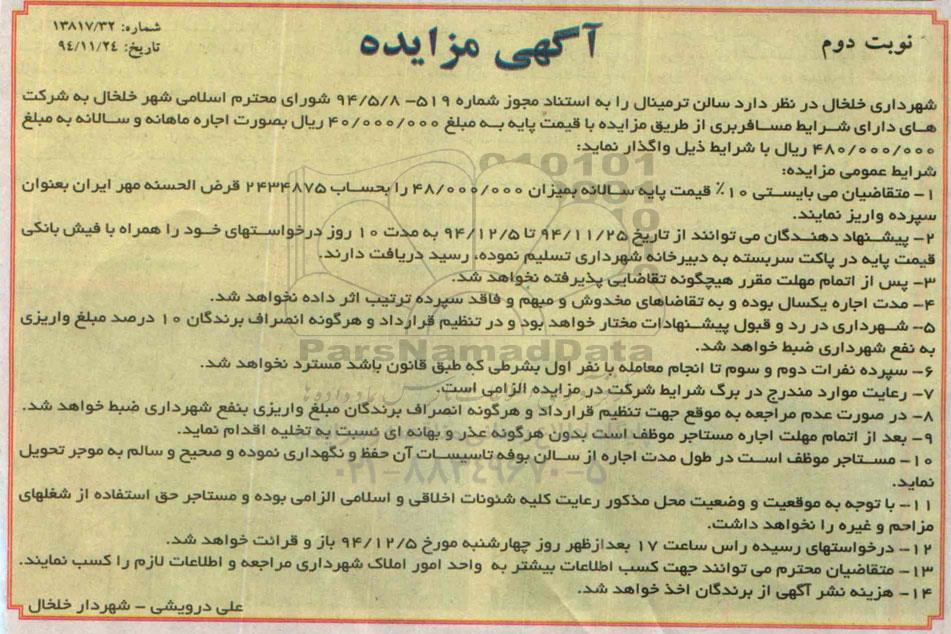 شماره: ۱۳۸۱۷/۳۲
تاریخ: ۹۴/۱۱/۲۴
آگهی مزایده
نوبت دوم
شهرداری خلخال در نظر دارد سالن ترمینال را به استناد مجوز شماره ۵۱۹- ۹۴/۵/۸ شورای محترم اسلامی شهر خلخال به شرکت
های دارای شرایط مسافربری از طریق مزایده با قیمت پایه به مبلغ ۴۰/۰۰۰/۰۰۰ ریال بصورت اجاره ماهانه و سالانه به مبلغ
۴۸۰/۰۰۰/۰۰۰ ریال با شرایط ذیل واگذار نماید:
شرایط عمومی مزایده:
۱- متقاضیان می بایستی ۱۰٪ قیمت پایه سالانه بمیزان ۴۸/۰۰۰/۰۰۰ را بحساب ۲۴۳۴۸۷۵ قرض الحسنه مهر ایران بعنوان
سپرده واریز نمایند.
۲- پیشنهاد دهندگان می توانند از تاریخ ۹۴/۱۱/۲۵ تا ۹۴/۱۲/۵ به مدت ۱۰ روز درخواستهای خود را همراه با فیش بانکی
قیمت پایه در پاکت سربسته به دبیرخانه شهرداری تسلیم نموده، رسید دریافت دارند.
۳- پس از اتمام مهلت مقرر هیچگونه تقاضایی پذیرفته نخواهد شد.
۴- مدت اجاره یکسال بوده و به تقاضاهای مخدوش و مبهم و فاقد سپرده ترتیب اثر داده نخواهد شد.
۵- شهرداری در رد و قبول پیشنهادات مختار خواهد بود و در تنظیم قرارداد و هرگونه انصراف برندگان ۱۰ درصد مبلغ واریزی
به نفع شهرداری ضبط خواهد شد.
ParsNamadData
۶- سپرده نفرات دوم و سوم تا انجام معامله با نفر اول بشرطی که طبق قانون باشد مسترد نخواهد شد.
۷- رعایت موارد مندرج در برگ شرایط شرکت در مزایده الزامی است.
۸- در صورت عدم مراجعه به موقع جهت تنظیم قرارداد و هرگونه انصراف برندگان مبلغ واریزی بنفع شهرداری ضبط خواهد شد.
۹- بعد از اتمام مهلت اجاره مستاجر موظف است بدون هرگونه عذر و بهانه ای نسبت به تخلیه اقدام نماید.
۱۰- مستاجر موظف است در طول مدت اجاره از سالن بوفه تاسیسات آن حفظ و نگهداری نموده و صحیح و سالم به موجر تحویل
نماید.
۰۲۱-۸۸۳۴۹۶۷۰-۵
۱۱- با توجه به موقعیت و وضعیت محل مذکور رعایت کلیه شئونات اخلاقی و اسلامی الزامی بوده و مستاجر حق استفاده از شغلهای
مزاحم و غیره را نخواهد داشت.
۱۲- درخواستهای رسیده راس ساعت ۱۷ بعدازظهر روز چهارشنبه مورخ ۹۴/۱۲/۵ باز و قرائت خواهد شد.
۱۳- متقاضیان محترم می توانند جهت کسب اطلاعات بیشتر به واحد امور املاک شهرداری مراجعه و اطلاعات لازم را کسب نمایند.
۱۴- هزینه نشر آگهی از برندگان اخذ خواهد شد.
علی درویشی - شهردار خلخال